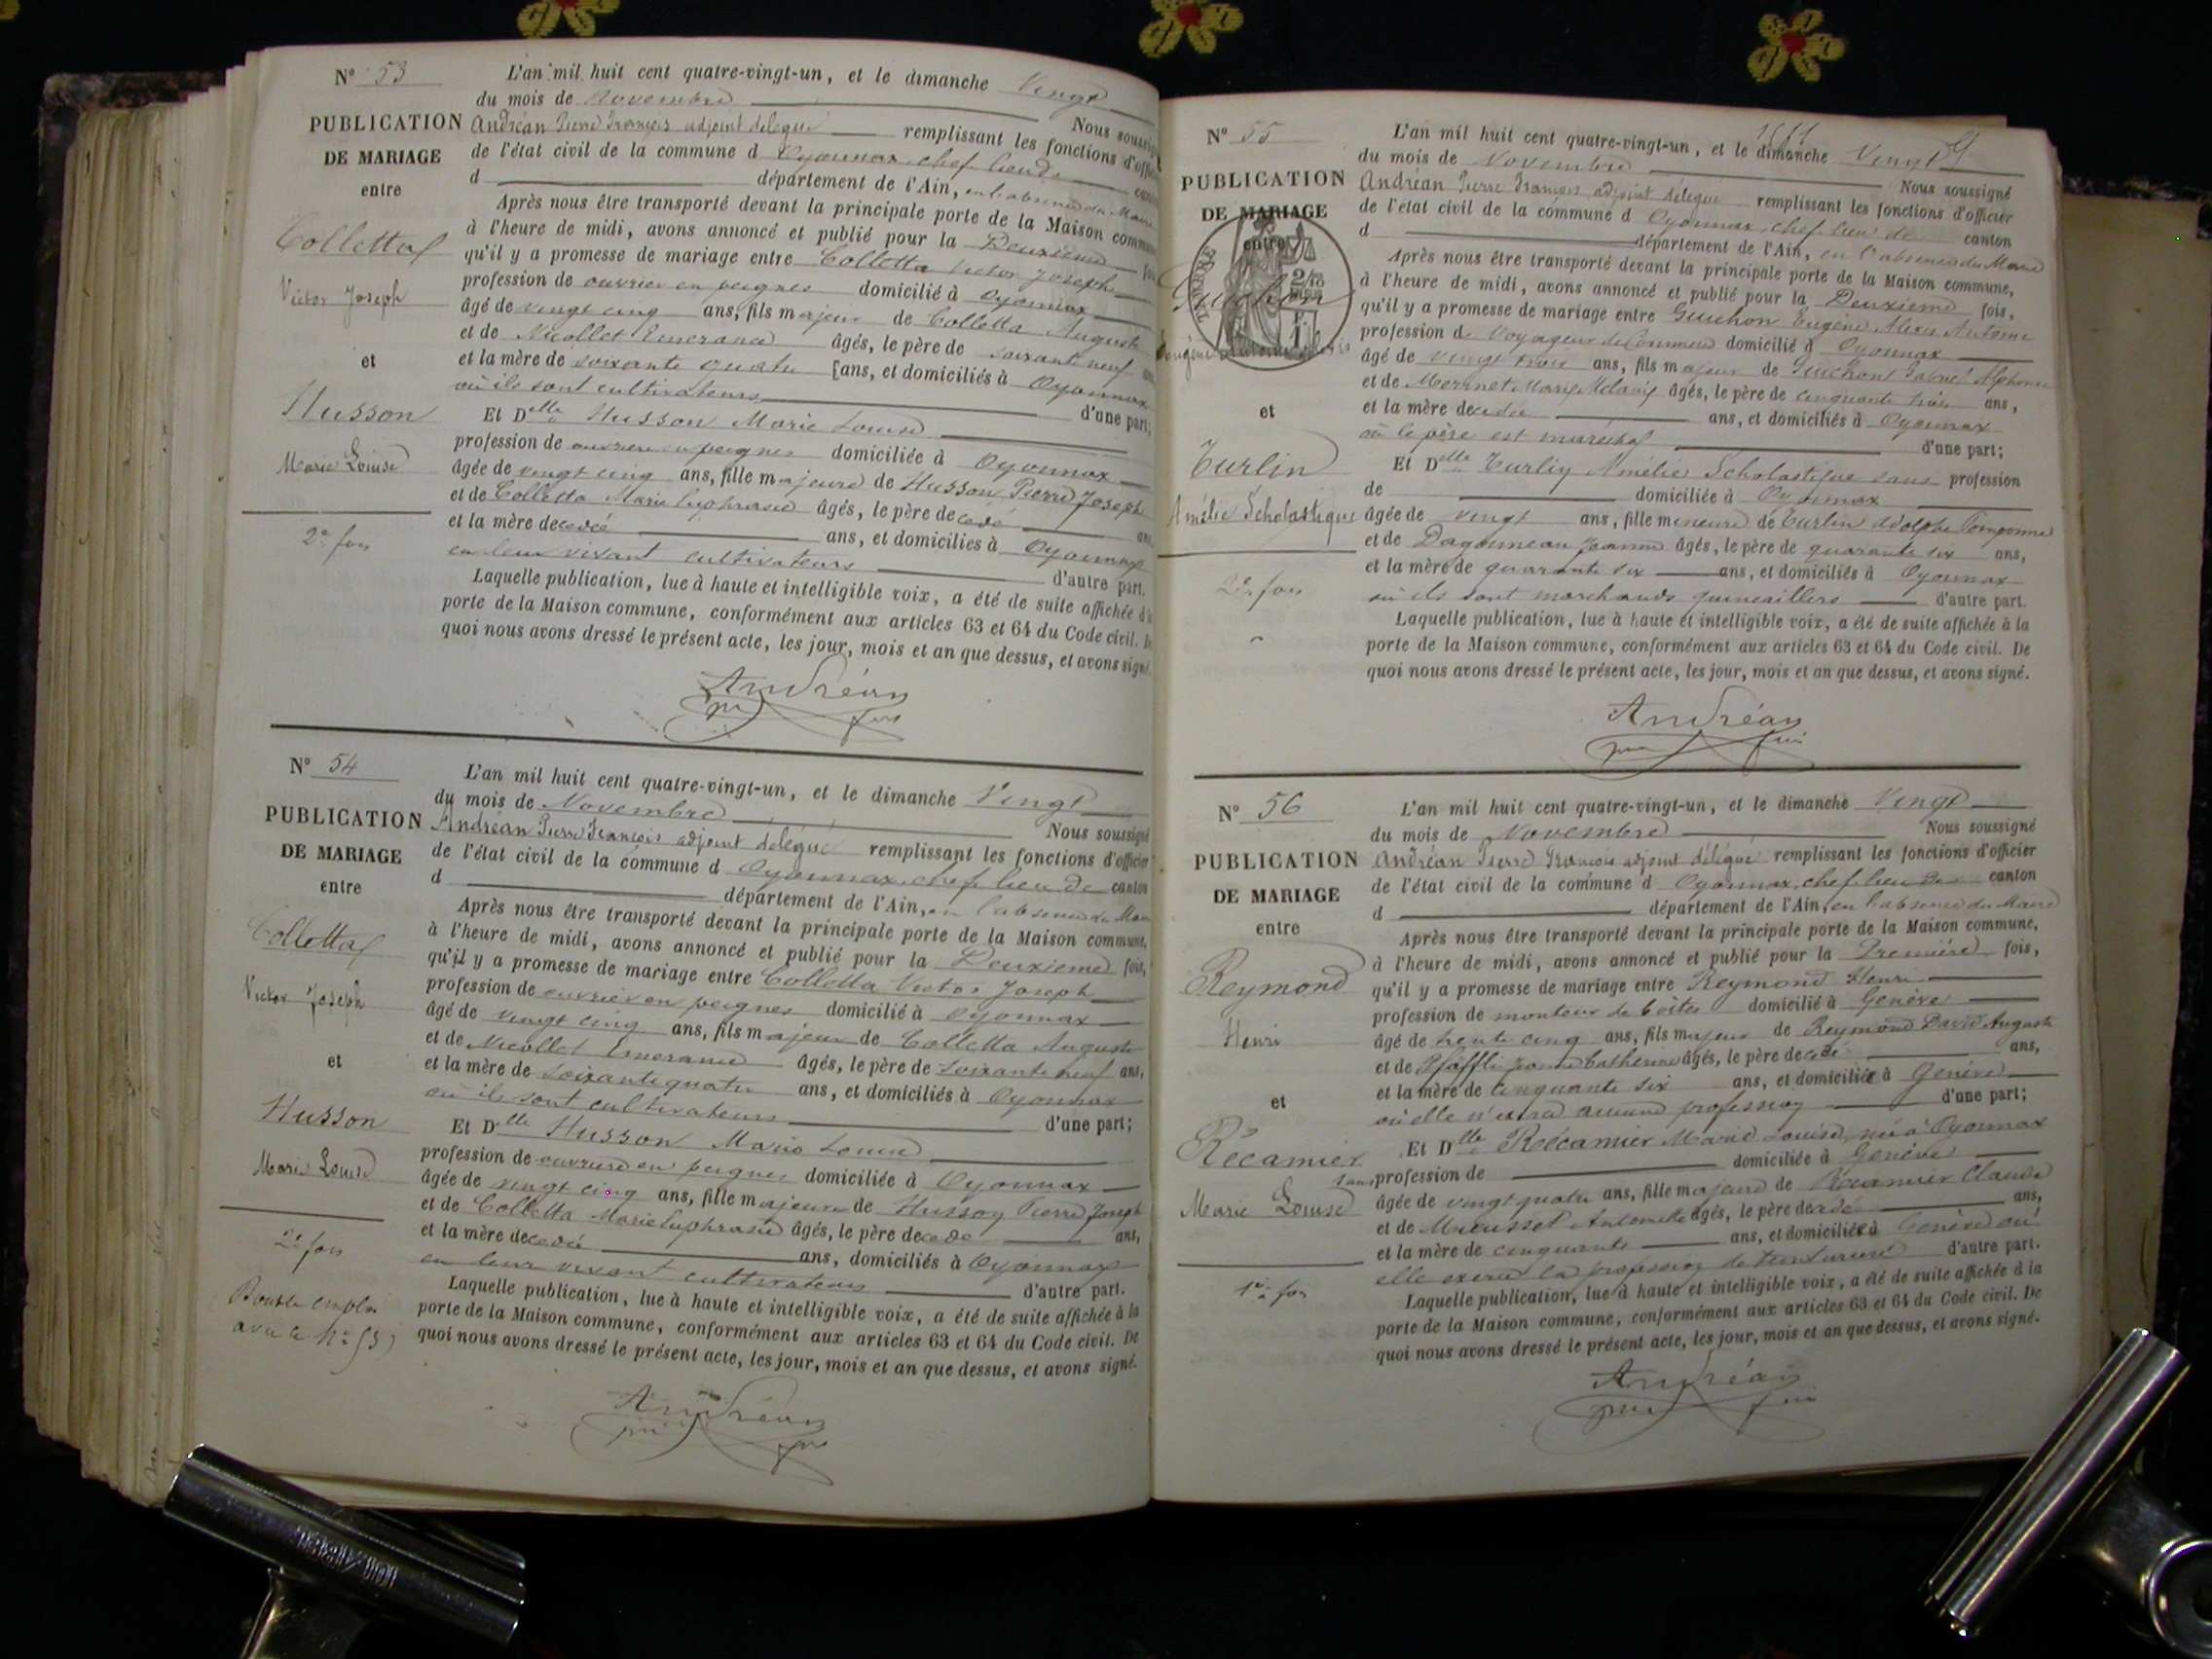 N° 53
PUBLICATION
DE MARIAGE
entre
Colletta
Victor Joseph
et
Husson
Marie Louise
2e fois
L'an mil huit cent quatre-vingt-un, et le dimanche Vingt
du mois de Novembre Nous soussigné
Andréan Pierre François adjoint délégué remplissant les fonctions d'offi
de l'état civil de la commune d Oyonnax chef lieu de
d département de l'Ain, en l'absence du Maire
Après nous être transporté devant la principale porte de la Maison commune
à l'heure de midi, avons annoncé et publié pour la Deuxième
qu'il y a promesse de mariage entre Colletta Victor Joseph
profession de ouvrier en peignes domicilié à Oyonnax
âgé de vingt cinq ans, fils majeur de Colletta Auguste
et de Nicollet Emerance âgés, le père de soixante neuf
et la mère de soixante quatre [ans, et domiciliés à Oyonnax
où ils sont cultivateurs d'une part;
Et Delle Husson Marie Louise
profession de ouvrière en peignes domiciliée à Oyonnax
âgée de vingt cinq ans, fille majeure de Husson Pierre Joseph
et de Colletta Marie Euphrasie âgés, le père decédé
et la mère decedée ans, et domicilies à Oyonnax
en leur vivant cultivateurs d'autre part.
Laquelle publication, lue à haute et intelligible voix, a été de suite affichée à
porte de la Maison commune, conformément aux articles 63 et 64 du Code civil. D
quoi nous avons dressé le présent acte, les jour, mois et an que dessus, et avons signé.
Andréan
N° 54
PUBLICATION
DE MARIAGE
entre
Colletta
Victor Joseph
et
Husson
Marie Louise
2e fois
Double emploi
avec le N° 53
L'an mil huit cent quatre-vingt-un, et le dimanche Vingt
du mois de Novembre Nous soussigné
Andréan Pierre François adjoint délégué remplissant les fonctions d'officier
de l'état civil de la commune d Oyonnax chef lieu de canton
d département de l'Ain, en l'absence du Maire
Après nous être transporté devant la principale porte de la Maison commune,
à l'heure de midi, avons annoncé et publié pour la Deuxieme fois,
qu'il y a promesse de mariage entre Colletta Victor Joseph
profession de ouvrier en peignes domicilié à Oyonnax
âgé de vingt cinq ans, fils majeur de Colletta Auguste
et de Nicollet Emerance âgés, le père de soixante neuf ans,
et la mère de soixante quatre ans, et domiciliés à Oyonnax
où ils sont cultivateurs d'une part;
Et Delle Husson Marie Louise
profession de ouvrière en peignes domiciliée à Oyonnax
âgée de vingt cinq ans, fille majeure de Husson Pierre Joseph
et de Colletta Marie Euphrasie âgés, le père decede ans,
et la mère decedée ans, domiciliés à Oyonnax
en leur vivant cultivateurs d'autre part.
Laquelle publication, lue à haute et intelligible voix, a été de suite affichée à la
porte de la Maison commune, conformément aux articles 63 et 64 du Code civil. De
quoi nous avons dressé le présent acte, les jour, mois et an que dessus, et avons signé.
Andréan
N° 55
PUBLICATION
DE MARIAGE
entre
Guichon
et
Turlin
Amélie Scholastique
2e fois
L'an mil huit cent quatre-vingt-un, et le dimanche Vingt
du mois de Novembre Nous soussigné
Andréan Pierre François adjoint délégué remplissant les fonctions d'officier
de l'état civil de la commune d Oyonnax, chef lieu de canton
d département de l'Ain, en l'absence du Maire
Après nous être transporté devant la principale porte de la Maison commune,
à l'heure de midi, avons annoncé et publié pour la Deuxième fois,
qu'il y a promesse de mariage entre Guichon Eugène Antoine
profession de Voyageur de Commerce domicilié à Oyonnax
âgé de vingt trois ans, fils majeur de Guichon Gabriel Alphonse
et de Mermet Marie âgés, le père de cinquante trois ans,
et la mère decedée ans, et domiciliés à Oyonnax
où le père est maréchal d'une part;
Et Delle Turlin Amélie Scholastique sans profession
de domiciliée à Oyonnax
âgée de vingt ans, fille mineure de Turlin Adolphe
et de Dagonneau Jeanne âgés, le père de quarante six ans,
et la mère de quarante six ans, et domiciliés à Oyonnax
où ils sont marchands quincaillers d'autre part.
Laquelle publication, lue à haute et intelligible voix, a été de suite affichée à la
porte de la Maison commune, conformément aux articles 63 et 64 du Code civil. De
quoi nous avons dressé le présent acte, les jour, mois et an que dessus, et avons signé.
Andréan
N° 56
PUBLICATION
DE MARIAGE
entre
Reymond
Henri
et
Récamier
Marie Louise
1re fois
L'an mil huit cent quatre-vingt-un, et le dimanche Vingt
du mois de Novembre Nous soussigné
Andréan Pierre François adjoint délégué remplissant les fonctions d'officier
de l'état civil de la commune d Oyonnax, chef lieu de canton
d département de l'Ain, en l'absence du Maire
Après nous être transporté devant la principale porte de la Maison commune,
à l'heure de midi, avons annoncé et publié pour la Première fois,
qu'il y a promesse de mariage entre Reymond Henri
profession de monteur de boites domicilié à Genève
âgé de trente cinq ans, fils majeur de Reymond David Auguste
et de Pfäffli Catherine âgés, le père decédé ans,
et la mère de cinquante six ans, et domiciliée à Genève
où elle n'exerce aucune profession d'une part;
Et Delle Récamier Marie Louise, née à Oyonnax
sans profession de domiciliée à Genève
âgée de vingt quatre ans, fille majeure de Récamier Claude
et de Antoinette âgés, le père decedé ans,
et la mère de cinquante ans, et domiciliée à Genève où
elle exerce la profession de d'autre part.
Laquelle publication, lue à haute et intelligible voix, a été de suite affichée à la
porte de la Maison commune, conformément aux articles 63 et 64 du Code civil. De
quoi nous avons dressé le présent acte, les jour, mois et an que dessus, et avons signé.
Andréan